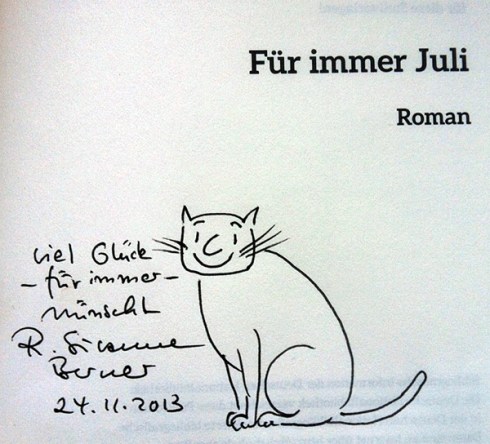 Für immer Juli
Roman
viel Glück
- für immer -
wünscht
R. Susanne
Berner
24.11.2013